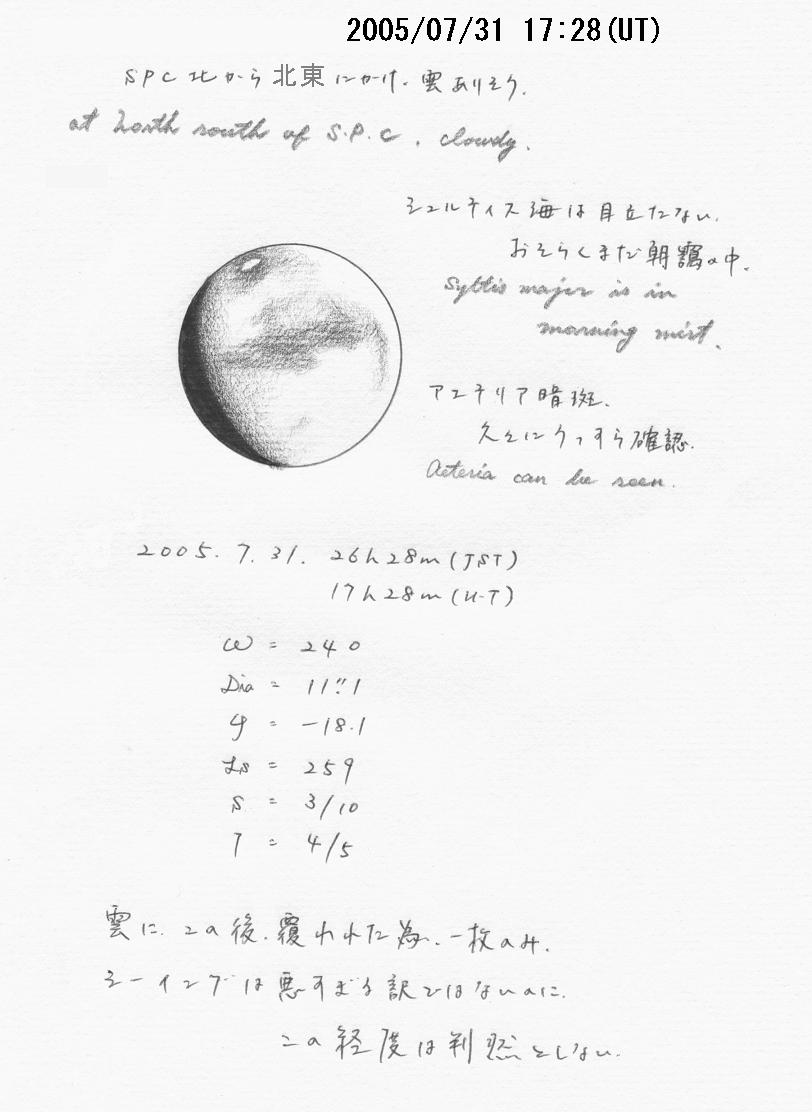 2005/07/31 17:28(UT)
SPC 北から 北東 にかけ、雲ありそう.
at North south of S.P.C. cloudy.
シュルティス海は目立たない.
おそらくまだ朝靄の中.
Syltis major is in
morning mist.
アエテリア暗斑、
久々にうっすら確認.
Aeteria can be seen.
2005. 7. 31. 26h 28m (JST)
17h 28m (U.T)
ω = 240
Dia = 11".1
φ = -18.1
Ls = 259
S = 3/10
T = 4/5
雲に、この後、覆われた為、一枚のみ.
シーイングは悪すぎる訳ではないのに.
この経度は判然としない.